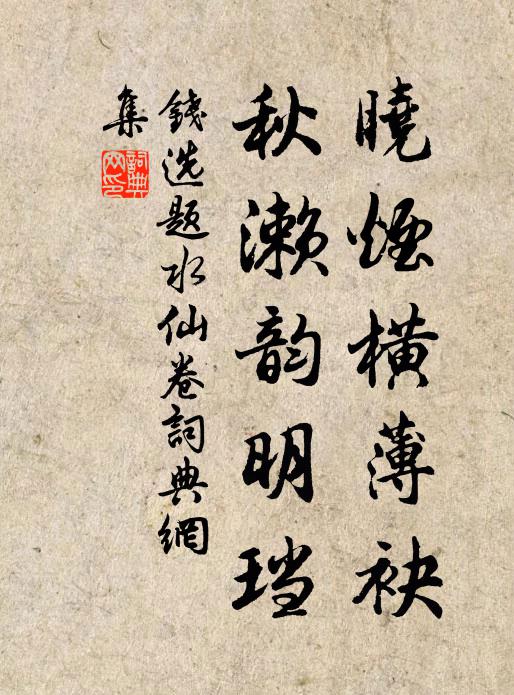 曉煙橫薄袂
秋瀨韵明珰
錢选题水仙卷詞典網
集
詞典网印